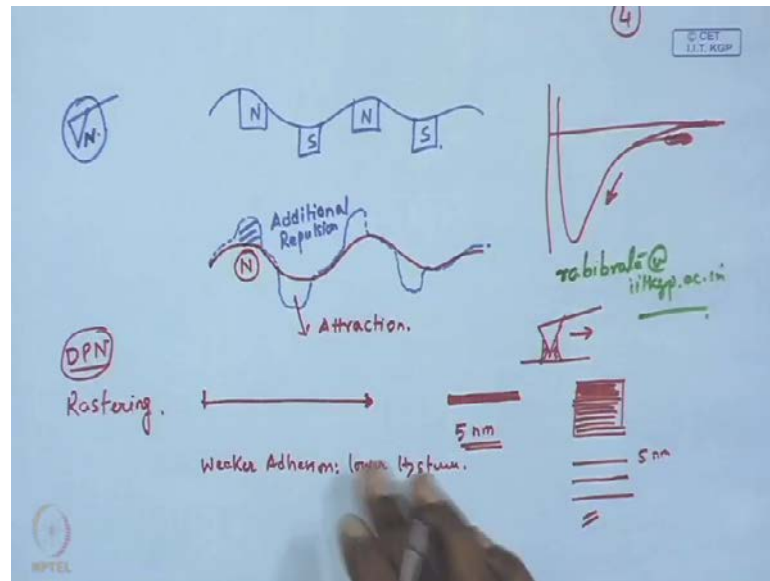 4
© CET
I.I.T. KGP
N.
N
S
N
S
Additional
Repulsion
N
Attraction.
rabibrata@
iitkgp.ac.in
DPN
Rastering.
5 nm
5 nm
Weaker Adhesion: lower
NPTEL